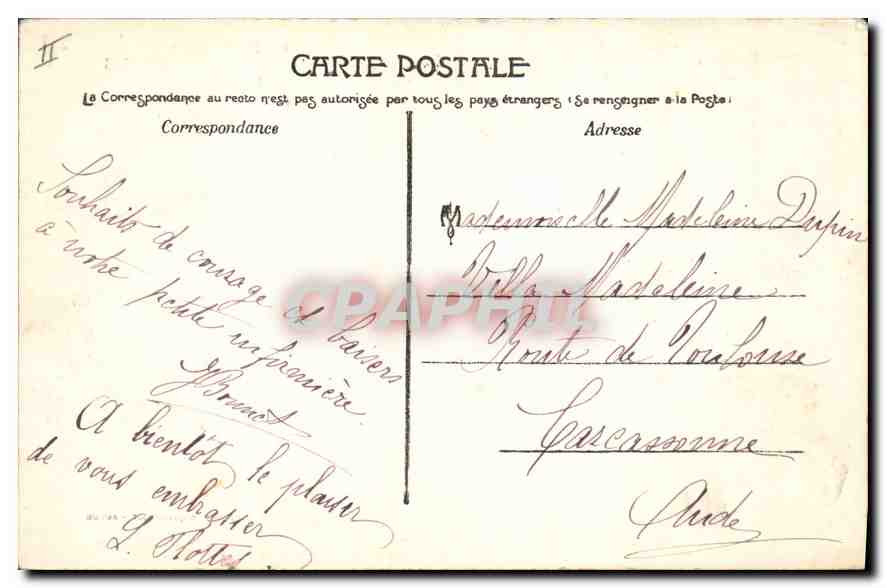 II
CARTE POSTALE
La Correspondance au recto n'est pas autorisée par tous les pays étrangers (Se renseigner à la Poste)
Correspondance
Adresse
Souhaits de courage et baisers
à notre petite infirmière.
Bonnet
A bientôt le plaisir
de vous embrasser
Mademoiselle Madeleine Dupin
Villa Madeleine
Route de Toulouse
Carcassonne
Aude
CPAPHIL